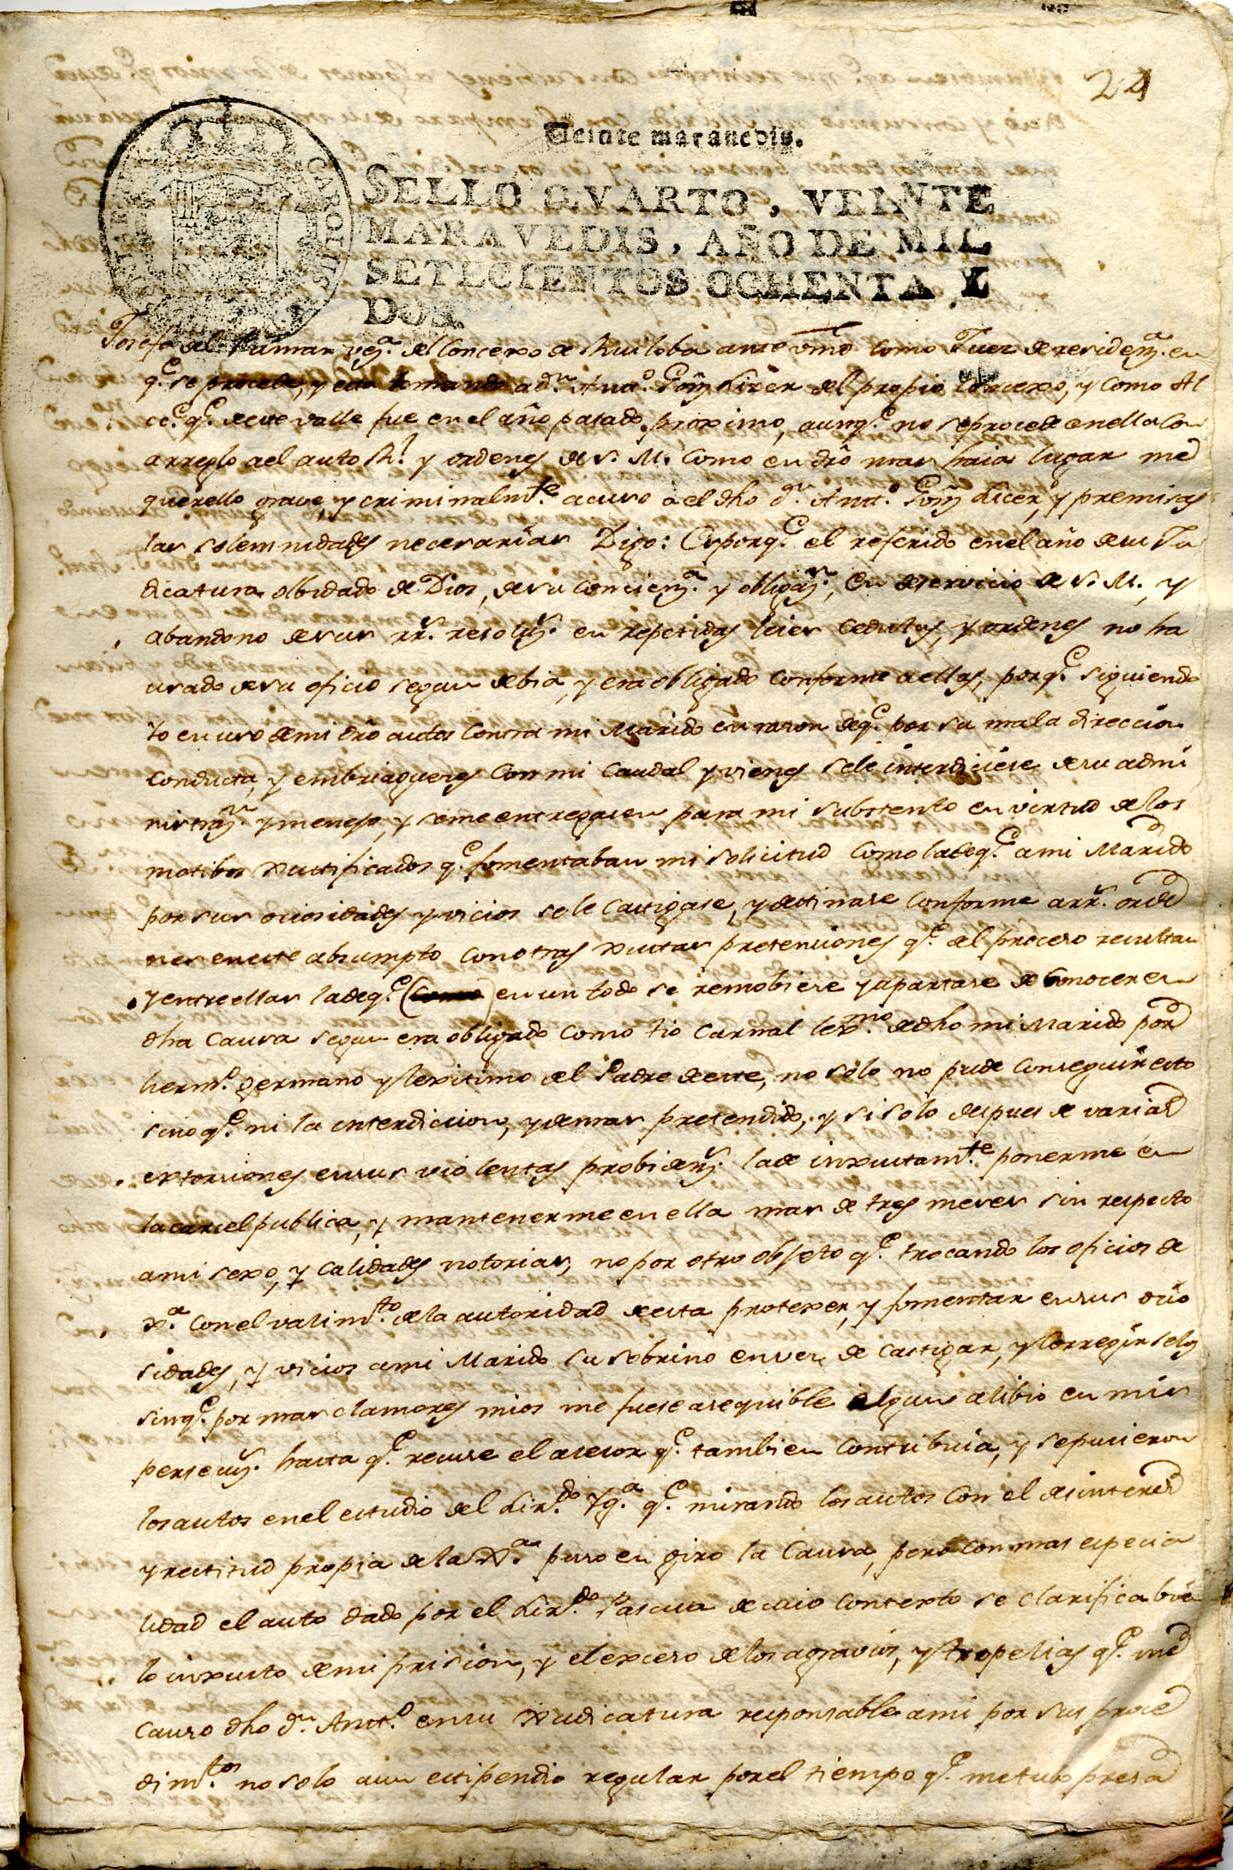 24
Veinte maravedis.
SELLO QVARTO, VEINTE
MARAVEDIS, AÑO DE MIL
SETECIENTOS OCHENTA Y
DOS.
Josefa del vezª. del Concexo de Ruiloba ante vmd como Juez de residenª. en
q.e se procede, y esta tomando a dn. Antto. del propio Concexo, y como Al
cde. q.e de este valle fue en el año pasado proximo, aunq.e no se procede en ella con
arreglo a el auto Rl. y ordenes de S. M. como en dro mas haia lugar me
querello grave, y criminalmte. acuso a el dho dn. Antto. y premisas
las solemnidades necesarias Digo: Es porq.e el referido en el año de su Ju
dicatura olbidado de Dios, de su concienª. y obligazn., en deservicio de S. M., y
abandono de sus rrs. resoluzs. en repetidas leies cedulas, y ordenes no ha
usado de su oficio segun debia, y era obligado conforme a ellas, porq.e siguiendo
Yo en uso de mi dro autos contra mi Marido en razon de q.e por su mala direccion
conducta, y embriagueces con mi caudal y vienes se le interdiciese de su admi
nistrazn. y menejo, y se me entreguen para mi substento en virtud de los
motibos xustificados q.e fomentaban mi solicitud como la de q.e a mi Marido
por sus ociosidades y vicios se le castigase, y destinase conforme a rrs. orde
nes en este absumpto, con otras xustas pretensiones q.e del proceso resultan
y entre ellas la de q.e (como) en un todo se remobiese y apartase de conocer en
dha causa segun era obligado como tio carnal lexmo. de dho mi Marido por
hermo. germano y lexitimo del Padre de este, no solo no pude conseguir esto
sino q.e ni la interdicion, y demas pretendido, y si solo despues de varias
extorsiones en sus violentas probidenzs. la de inxustamte. ponerme en
la carcel publica, y mantenerme en ella mas de tres meses sin respecto
a mi sexo, y calidades notorias, no por otro objeto q.e trocando los oficios de
xª. con el valimto. de la autoridad de esta protexer, y fomentar en sus ocio
sidades, y vicios a mi Marido su sobrino en vez de castigar, y corregirselos
sin q.e por mas clamores mios me fuese asequible algun alibio en mis
persecuzs. hasta q.e recuse el asesor q.e tambien contribuia, y se pusieron
los autos en el estudio del Lizdo. q.e mirando los autos con el desinteres
y rectitud propia de la xª. puso en giro la causa, pero con mas especia
lidad el auto dado por el Lizdo. Pascua de cuio contexto se clarifica bie
lo inxusto de mi prision, y el exceso de los agravios, y tropelias q.e me
causo dho dn. Antto. en su xudicatura responsable a mi por sus proce
dimtos. no solo a un estipendio regular por el tiempo q.e me tubo presa